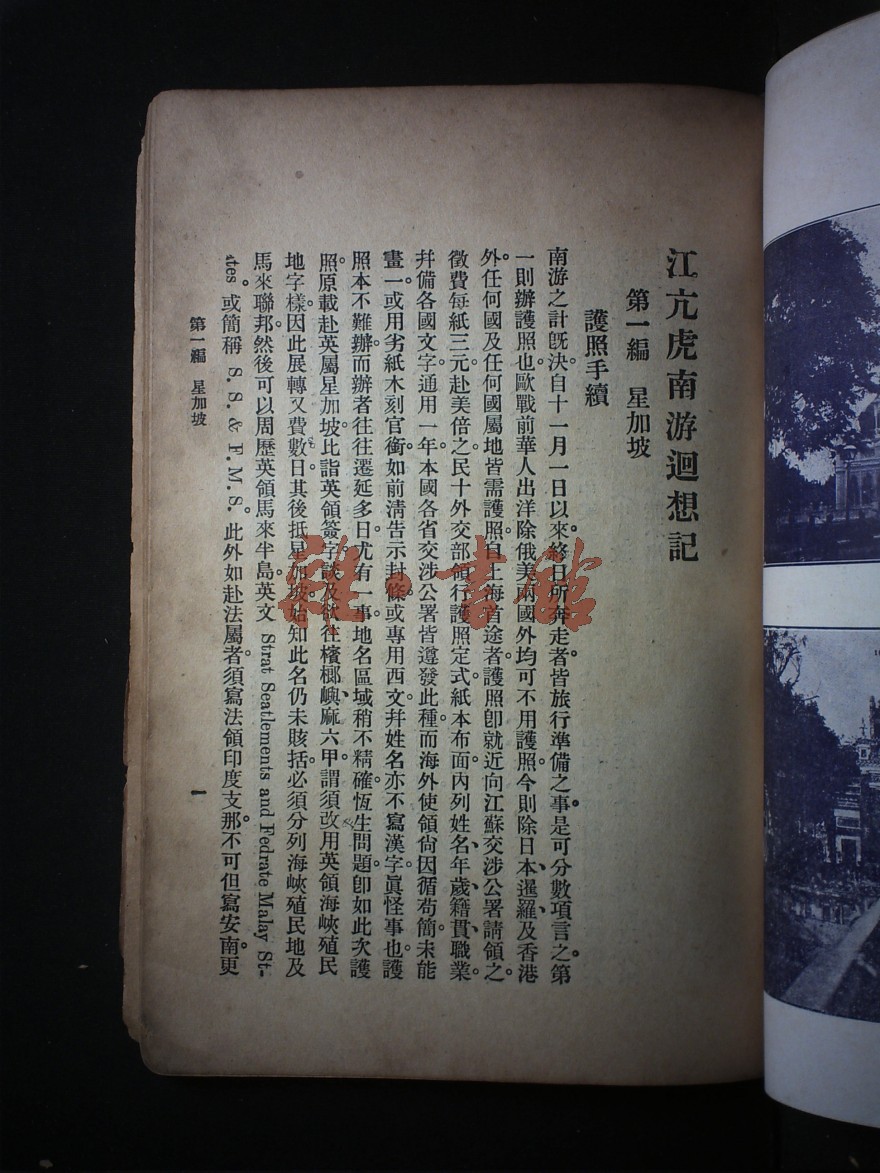 江亢虎南游迴想記
第一編　星加坡
護照手續
南游之計旣決。自十一月一日以來。終日所奔走者。皆旅行準備之事。是可分數項言之。第
一則辦護照也。歐戰前華人出洋。除俄美兩國外。均可不用護照。今則除日本、暹羅、及香港
外。任何國及任何國屬地。皆需護照。自上海首途者。護照卽就近向江蘇交涉公署請領之。
徵費每紙三元。赴美倍之。民十外交部頒行護照定式。紙本布面。內列姓名、年歲、籍貫、職業
幷備各國文字。通用一年。本國各省交涉公署。皆遵發此種。而海外使領。尙因循苟簡。未能
畫一。或用劣紙木刻官銜。如前淸告示封條。或專用西文。幷姓名亦不寫漢字。眞怪事也。護
照本不難辦。而辦者往往遷延多日。尤有一事。地名區域。稍不精確。恆生問題。卽如此次護
照。原載赴英屬星加坡。比詣英領簽字。談及欲往檳榔嶼、麻六甲。謂須改用英領海峽殖民
地字樣。因此展轉又費數日。其後抵星加坡。始知此名仍未賅括。必須分列海峽殖民地及
馬來聯邦。然後可以周歷英領馬來半島。英文 Strat Seatlements and Fedrate Malay St-
ates 。或簡稱 S. S. & F. M. S. 。此外如赴法屬者。須寫法領印度支那。不可但寫安南。更
第一編　星加坡
一
雜·書館